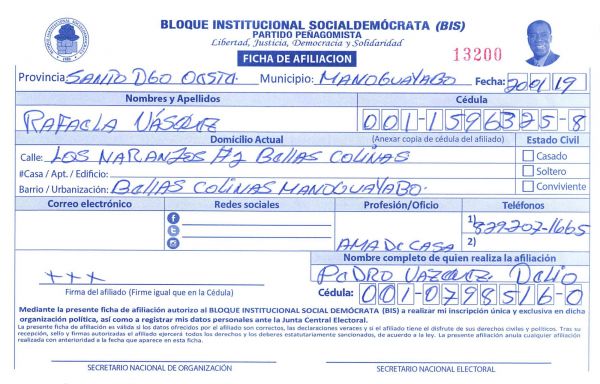 BLOQUE INSTITUCIONAL SOCIALDEMÓCRATA (BIS)
PARTIDO PEÑAGOMISTA
Libertad, Justicia, Democracia y Solidaridad
FICHA DE AFILIACION
13200
Provincia: SANTO DGO OESTE. Municipio: MANOGUAYABO Fecha: 2001/19
Nombres y Apellidos Cédula
RAFAELA VÁSQUEZ 001-1596325-8
Domicilio Actual (Anexar copia de cédula del afiliado) Estado Civil
Calle: LOS NARANJOS #2 BELLAS COLINAS Casado
#Casa / Apt. / Edificio: Soltero
Barrio / Urbanización: BELLAS COLINAS MANOGUAYABO. Conviviente
Correo electrónico Redes sociales Profesión/Oficio Teléfonos
1) 829-207-1665
AMA DE CASA 2)
Nombre completo de quien realiza la afiliación
+++ PEDRO VAZQUEZ
Firma del afiliado (Firme igual que en la Cédula) Cédula: 001-0798516-0
Mediante la presente ficha de afiliación autorizo al BLOQUE INSTITUCIONAL SOCIAL DEMÓCRATA (BIS) a realizar mi inscripción única y exclusiva en dicha
organización política, así como a registrar mis datos personales ante la Junta Central Electoral.
La presente ficha de afiliación es válida si los datos ofrecidos por el afiliado son correctos, las declaraciones veraces y si el afiliado tiene el disfrute de sus derechos civiles y políticos. Tras su
recepción, sello y firmas autorizadas el afiliado ejercerá todos los derechos y los deberes estatutariamente sancionados, de acuerdo a la ley. La presente afiliación anula cualquier afiliación
realizada con anterioridad a la fecha que aparece en esta ficha.
SECRETARIO NACIONAL DE ORGANIZACIÓN SECRETARIO NACIONAL ELECTORAL